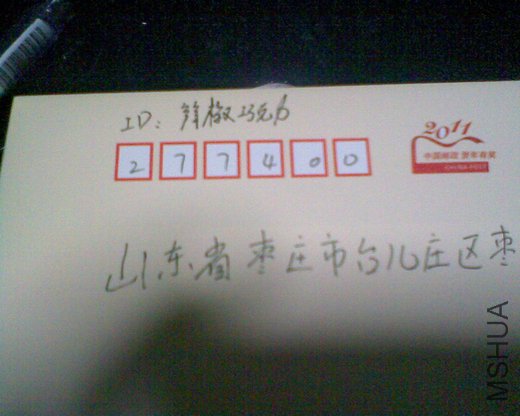 ID: 辣椒巧克力
2 7 7 4 0 0
2011
中国邮政 贺年有奖
CHINA POST
山东省枣庄市台儿庄区枣
MSHUA